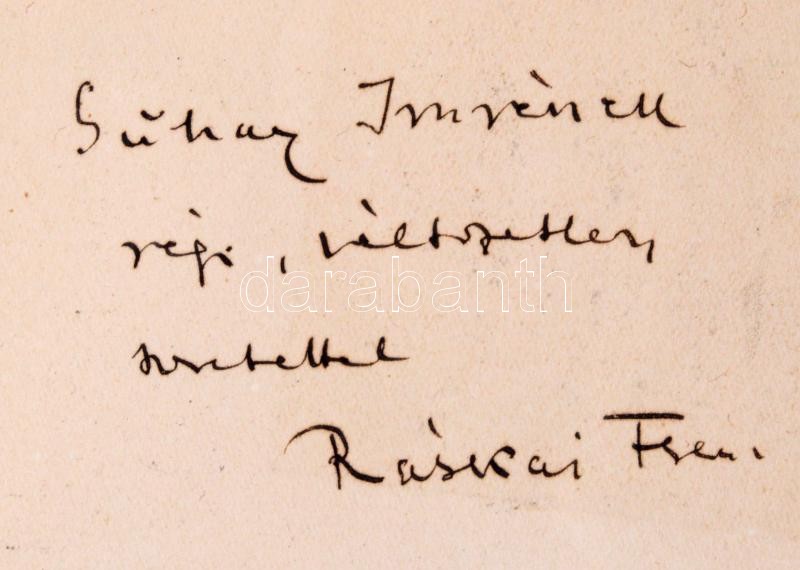 Suhay Imrének
régi, változatlan
szeretettel
Ráskai Feren.
darabanth